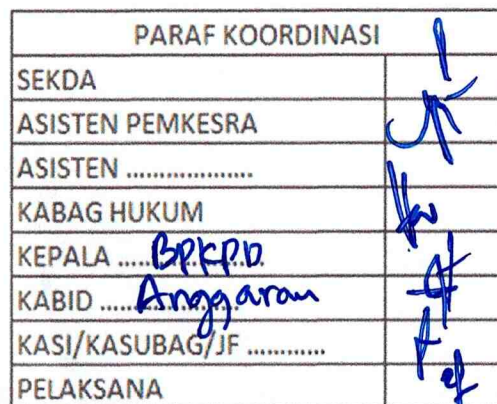 PARAF KOORDINASI
SEKDA
ASISTEN PEMKESRA
ASISTEN ...................
KABAG HUKUM
KEPALA ..... BPKPD
KABID ...... Anggaran
KASI/KASUBAG/JF ............
PELAKSANA